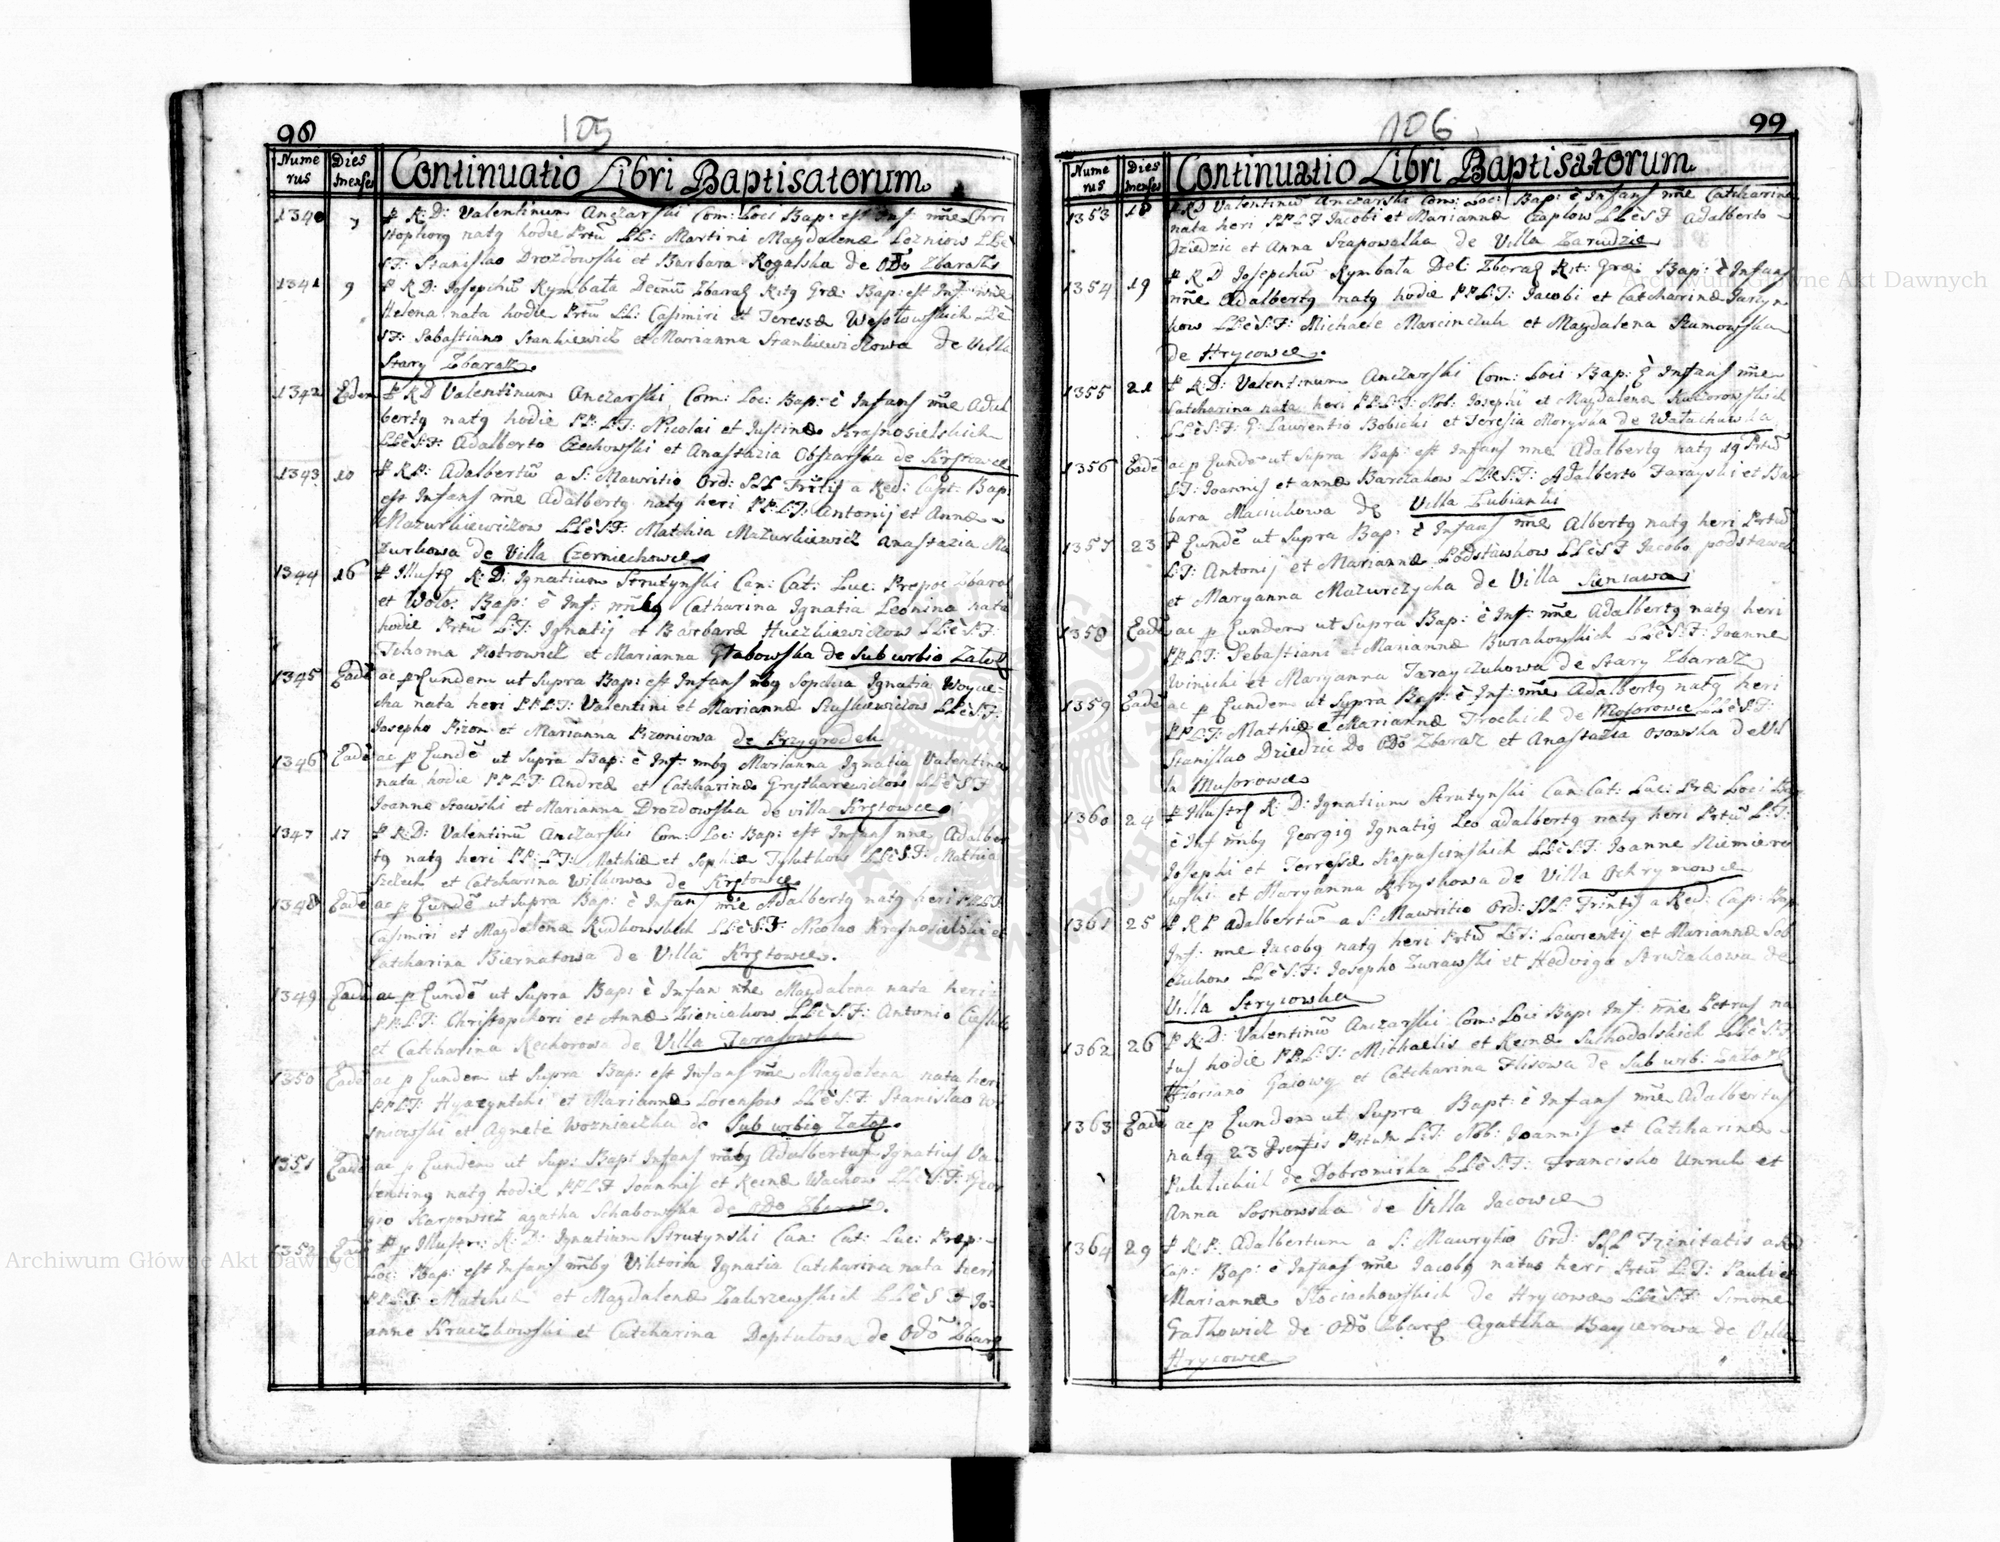 98
105
Nume
rus
Dies
menses
Continuatio Libri Baptisatorum
1340 7 P R: D: Valentinum Anczarski Com: Loci Bap: est Inf: nne Chri
stophorg natg hodie Prtu LL: Martini Magdalenæ Lozniow LLè
ST: Stanislao Drozdowski et Barbara Rogalska de Odo Zbaraz
1341 9 P R D: Josephu Rymbała Decnu Zbaraz Ritg Græ: Bap: est Inf: nne
Helena nata hodie Prtu LL: Casimiri et Teressæ Wesołowskich LLè
ST: Sabastiano Stankiewicz et Marianna Stankiewiczowa de Villa
Stary Zbaraz.
1342 Eadem P R D Valentinum Anczarski Com: Loc: Bap: è Infans nne Adal
bertg natg hodie PP: LT: Nicolai et Justinæ Krasnosielskich
LLèS:T: Adalberto Czechowski et Anastazia Obszarska de Krętowce
1343 10 P R P: Adalbertu a S: Mauritio Ord: SSS Trntis a Red: Capt: Bap:
est Infans nne Adalbertg natg heri PP: LT: Antonij et Annæ
Mazurkiewiczow LLèS:T: Mathia Mazurkiewicz Anastazia Ma
zurkowa de Villa Czerniechowce
1344 16 P Illustr R: D: Ignatium Strutynski Can: Cat: Luc: Prepos Zbaral
et Woło: Bap: è Inf: nnbg Catharina Ignatia Leonina nata
hodie Prtu L:T: Ignatij et Barbaræ Huczkiewiczow LLèS:T:
Thoma Piotrowicz et Marianna Grabowska de Sub urbio Zaluz
1345 Eade ac p Eundem ut Supra Bap: est Infans nbg Sophia Ignatia Woycie
cha nata heri PP: L:T: Valentini et Mariannæ Stuskiewiczow LLèS:T:
Josepho Pizon et Marianna Pizoniowa de Przygrodek
1346 Eade ac p Eunde ut Supra Bap: è Inf: nnbg Marianna Ignatia Valentina
nata hodie PP: L:T: Andreæ et Catharinæ Gryttharewiczow LLèST
Joanne Stawski et Marianna Drozdowska de villa Krętowce
1347 17 P R: D: Valentinu Anczarski Com: Loc: Bap: est Infans nne Adalber
tg natg heri PP: LT: Mathiæ et Sophiæ Tyluthow LLèST: Mathia
Szeluk et Catharina Wilkowa de Krętowce
1348 Eade ac p Eunde ut Supra Bap: è Infans nne Adalbertg natg heri PP: LT
Casimiri et Magdalenæ Rudkowskich LLèS:T: Nicolao Krasnosielski et
Catharina Biernatowa de Villa Krętowce.
1349 Eade ac p Eunde ut Supra Bap: è Infan nne Magdalena nata heri
PP: LT: Christophori et Annæ Zieniakow LLèS:T: Antonio Cieslik
et Catharina Kechorowa de Villa Tarasowka
1350 Eade ac p Eundem ut Supra Bap: est Infans nne Magdalena nata heri
PP: LT: Hyacyntchi et Mariannæ Lorensow LLèS:T: Stanislao Wi
sniowski et Agnete Wozniaczka de Sub urbio Zaluz.
1351 Eade ac p Eundem ut Sup: Bapt Infans nnbg Adalbertus Ignatius Va
lenting natg hodie PP LT Joannis et Reinæ Wachow LLèS:T: Geor
gio Karpowicz agatha Schabowska de Odo Zbaraz.
1352 Eade P p Illustr: R: D: Ignatium Strutynski Can: Cat: Luc: Prep:
Loc: Bap: est Infans nnbg Viktoria Ignatia Catharina nata heri
PP: LT: Mathiæ et Magdalenæ Zakrzewskich LLèST Jo
anne Kruczkowski et Catharina Deptułowa de Odo Zbaraz
99
106
Nume
rus
Dies
menses
Continuatio Libri Baptisatorum
1353 18 P RD Valentinu Anczarski Com: Loci Bap: è Infans nne Catharina
nata heri PP LT Jacobi et Mariannæ Czaplow LLèST Adalberto
Dziedzic et Anna Szapowalka de Villa Zarudzie
1354 19 P R D Josephu Rymbała Dec: Zbaraz Rit: Græ: Bap: è Infans
nne Adalbertg natg hodie PP: LT: Jacobi et Catharinæ Jarzyn
kow LLèS:T: Michaele Marcinczuk et Magdalena Szumowska
de Hrycowce.
1355 21 P R: D: Valentinum Anczarski Com: Loci Bap: è Infans nne
Catharina nata heri PP: LT: Nob: Josephi et Magdalenæ Kaniorowskich
LLèS:T: G: Laurentio Bobicki et Teresia Moryska de Wałachuwka
1356 Eade ac p Eunde ut Supra Bap: est Infans nne Adalbertg natg 19 Prtu
LT: Joannis et annæ Barczakow LLèS:T: Adalberto Tarayski et Bar
bara Maciukowa de Villa Lubianki
1357 23 P Eunde ut Supra Bap: è Infans nne Albertg natg heri Prtu
L:T: Antonij et Mariannæ Podstawkow LLèST Jacobo podstawek
et Maryanna Mazurczycha de Villa Sieniawa
1358 Eade ac p Eundem ut Supra Bap: è Inf: nne Adalbertg natg heri
PP: LT: Sebastiani et Mariannæ Burakowskich LLèS:T: Joanne
Winicki et Maryanna Tarayczukowa de Stary Zbaraz
1359 Eade ac p Eundem ut Supra Bap: è Inf: nne Adalbertg natg heri
PP LT: Mathiæ è Mariannæ Trochich de Mosorowce LLèS:T:
Stanislao Dziedzic Do Odo Zbaraz et Anastazia Osowska de Vil
la Musorowce
1360 24 P Illustr R: D: Ignatium Strutynski Can: Cat: Luc: Præ: Loci Bap
è Inf nnbg Georgig Ignatig Leo adalbertg natg heri Prtu L:T:
Josephi et Terresæ Kapuscinskich LLèS:T: Joanne Niemiero
wski et Maryanna Krzyskowa de Villa Ochrymowce
1361 25 P R P Adalbertu a S: Mauritio Ord: SSS: Trintis a Red: Cap: Bap
Inf: nne Jacobg natg heri Prtu L:T: Laurentij et Mariannæ Sob
czukow LLèS:T: Josepho Zurawski et Hedwiga Struzakowa de
Villa Stryiowka
1362 26 P R: D: Valentinu Anczarski Com: Loci Bap: Inf: nne Petrus na
tus hodie PP: LT: Michaelis et Reinæ Suchodolskich LLèS:T:
Floriano Gaiowy et Catharina Flisowa de Sub urb: Zaluz
1363 Eade ac p Eundem ut Supra Bapt: è Infans nne Adalbertus
natg 23 Psentis Prtum L:T: Nob: Joannis et Catharinæ
Pulikich de Dobromirka LLèS:T: Francisko Unruh et
Anna Sosnowska de Villa Jacowce
1364 29 P R: P: Adalbertum a S: Maurytio Ord: SSS Trinitatis a Red
Cap: Bap: è Infans nne Jacobg natus heri Prtu L:T: Pauli et
Mariannæ Stociachowskich de Hrycowce LLèS:T: Simone
Gathowicz de Odo Zbaraz Agatha Bayierowa de Villa
Hrycowce
Archiwum Główne Akt Dawnych
Archiwum Główne Akt Dawnych